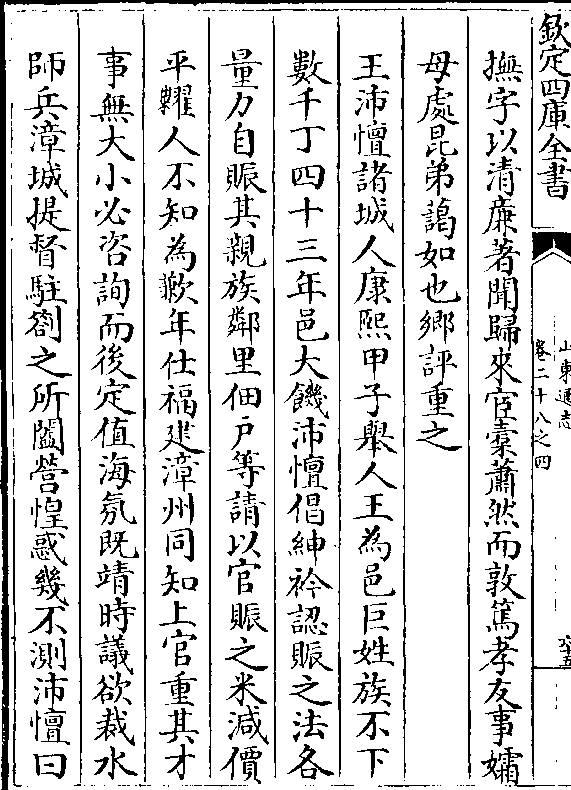 欽定四庫全書
山東通志
卷二十八之四
撫字以清㢘著聞歸來宦橐蕭然而敦篤孝友事孀
母處昆弟藹如也鄉評重之
王沛憻諸城人康熙甲子舉人王為邑巨姓族不下
數千丁四十三年邑大饑沛憻倡紳衿認賑之法各
量力自賑其親族鄰里佃户等請以官賑之米減價
平糶人不知為歉年仕福建漳州同知上官重其才
事無大小必咨詢而後定值海氛既靖時議欲裁水
師兵漳城提督駐劄之所闔營惶惑幾不測沛憻曰